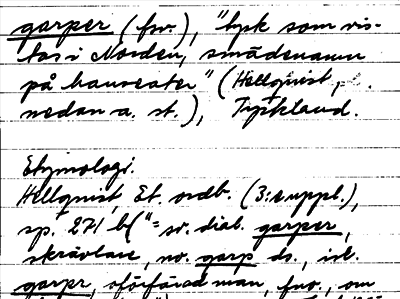 garper (fnv.), "tysk som vis-
tas i Norden, smädenamn
på hanseater" (Hellqvist,
nedan a. st.), Tyskland.
Etymologi.
Hellqvist, Et. ordb. (3:e uppl.),
sp. 271 b ("= sv. dial. garper,
skrävlare, no. garp ds., isl.
garpr, oförfärad man, fno., om